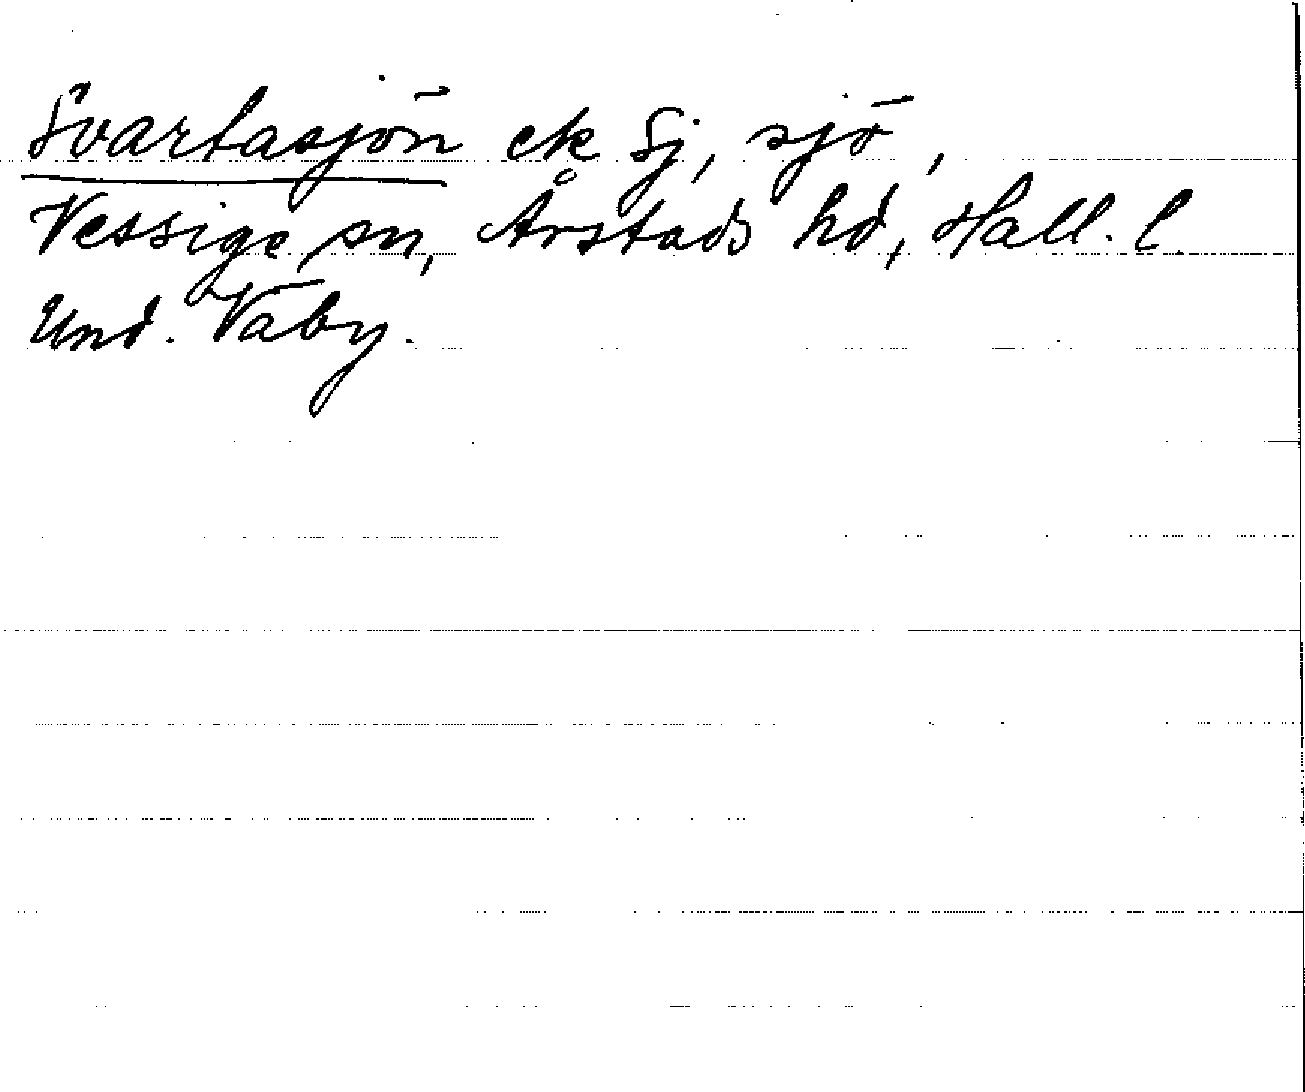 Svartasjön ek Sj, sjö,
Vessige sn, Årstads hd, Hall. l.
Und. Väby.